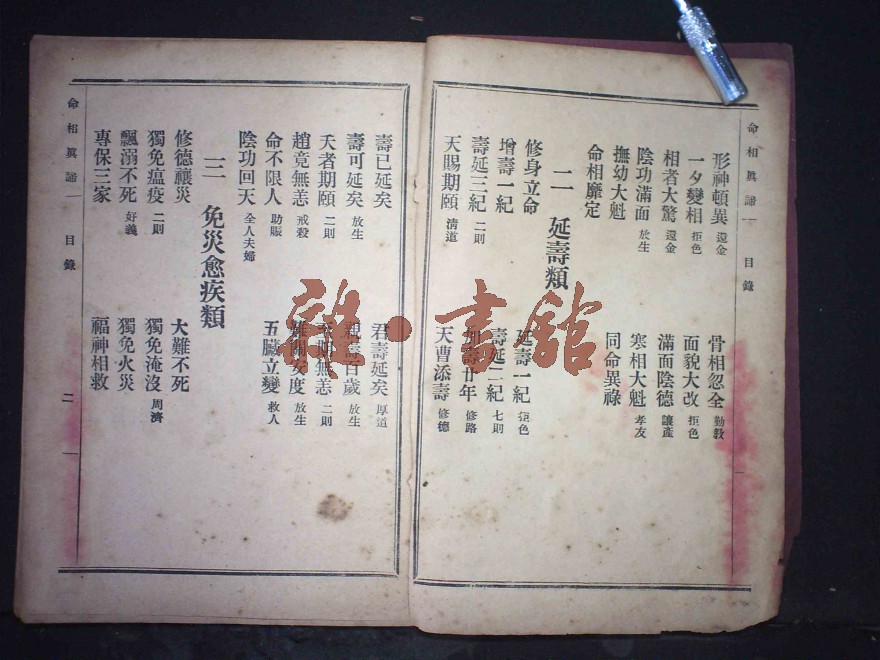 命相眞諦 目錄 一
形神頓異 還金 骨相忽全 勸敎
一夕變相 拒色 面貌大改 拒色
相者大驚 還金 滿面陰德 讓產
陰功滿面 放生 寒相大魁 孝友
撫幼大魁 同命異祿
命相靡定
二 延壽類
修身立命 延壽一紀 拒色
增壽一紀 壽延二紀 七則
壽延三紀 二則 壽廿年 修路
天賜期頤 清道 天曹添壽 修德
壽已延矣 君壽延矣 厚道
壽可延矣 放生 壽百歲 放生
夭者期頤 二則 無恙 二則
趙竟無恙 戒殺 安度 放生
命不限人 助賑 五臟立變 救人
陰功回天 全人夫婦
三 免災愈疾類
修德禳災 大難不死
獨免瘟疫 二則 獨免淹沒 周濟
飄溺不死 好義 獨免火災
專保三家 福神相救
命相眞諦 目錄 二
雜·書館